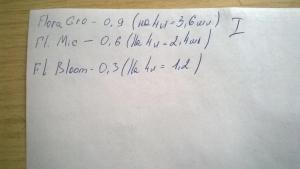 Flora Gro - 0,9 (на 4л = 3,6 мл) I
Fl. Mic - 0,6 (На 4л = 2,4 мл)
Fl Bloom - 0,3 (На 4л = 1,2)